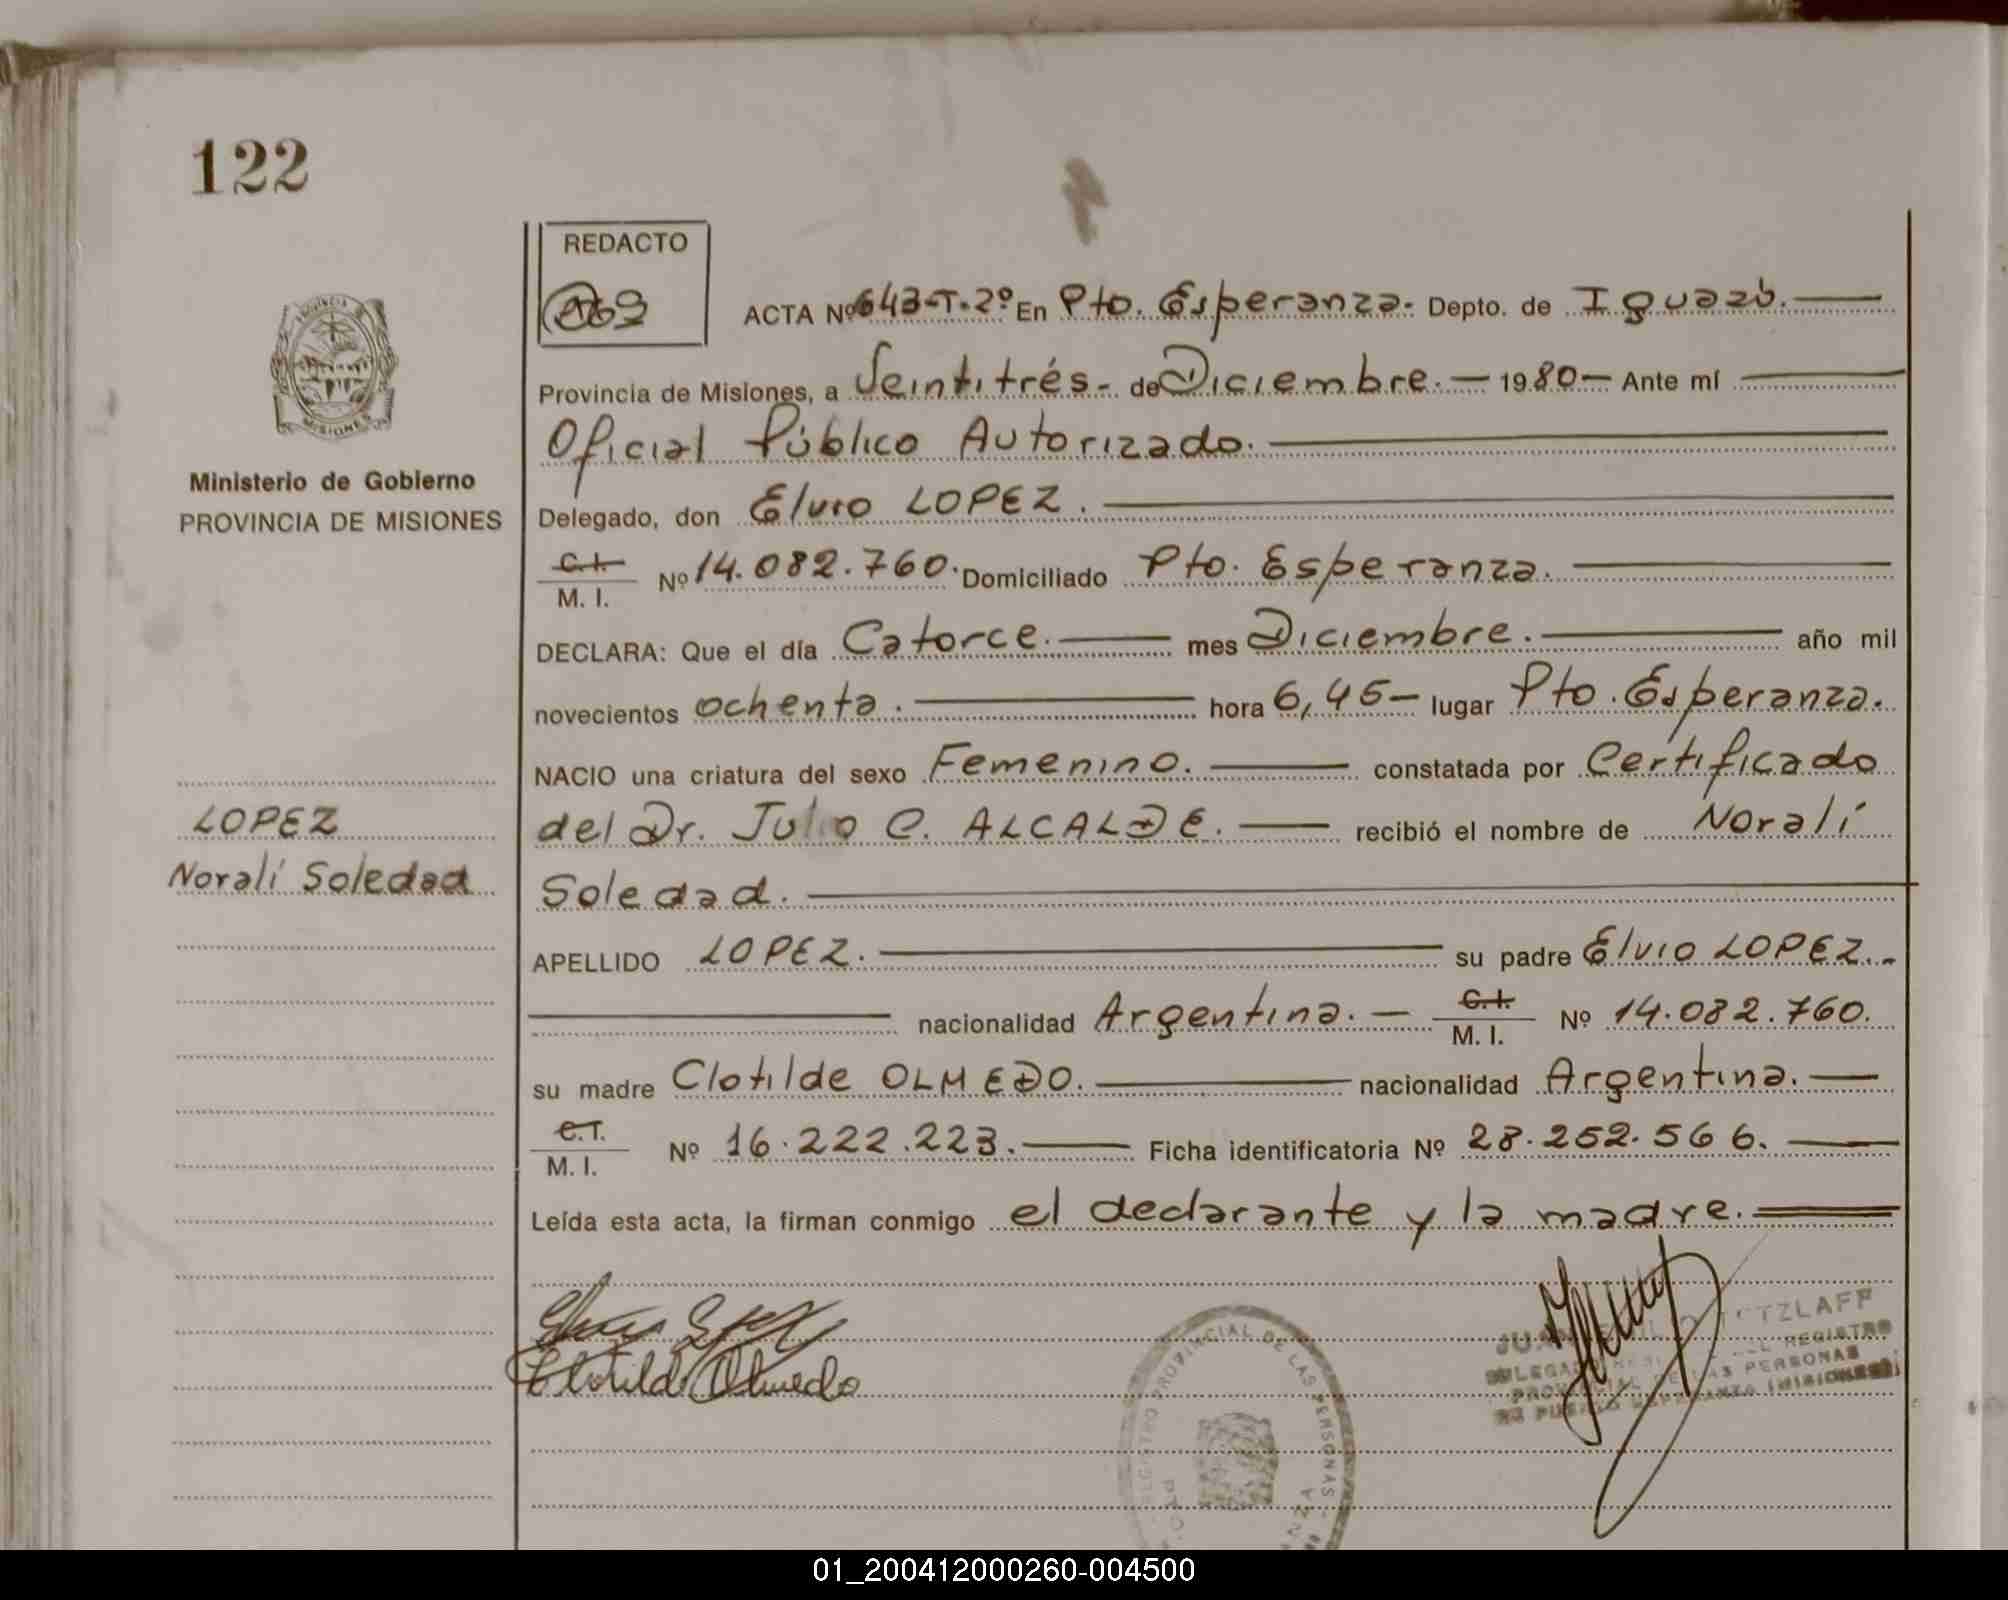 122
REDACTO
ACTA Nº 643-T-2º En Pto. Esperanza. Depto. de Iguazú.
Provincia de Misiones, a Veintitrés.- de Diciembre. 1980 Ante mí
Oficial Público Autorizado.
Ministerio de Gobierno
PROVINCIA DE MISIONES
Delegado, don Elvio LOPEZ.
C.I.
M. I. Nº 14.082.760. Domiciliado Pto. Esperanza.
DECLARA: Que el día Catorce. mes Diciembre. año mil
novecientos ochenta. hora 6,45 lugar Pto. Esperanza.
NACIO una criatura del sexo Femenino. constatada por Certificado
del Dr. Julio C. ALCALDE. recibió el nombre de Noralí
Soledad.
LOPEZ
Noralí Soledad
APELLIDO LOPEZ. su padre Elvio LOPEZ.
nacionalidad Argentina. C.I.
M. I. Nº 14.082.760.
su madre Clotilde OLMEDO. nacionalidad Argentina.
C.I.
M. I. Nº 16.222.223. Ficha identificatoria Nº 28.252.566.
Leída esta acta, la firman conmigo el declarante y la madre.
Clotilde Olmedo
REGISTRO PROVINCIAL DE LAS PERSONAS
PROVINCIAL DE LAS PERSONAS
DE PUERTO ESPERANZA (MISIONES)
01_200412000260-004500